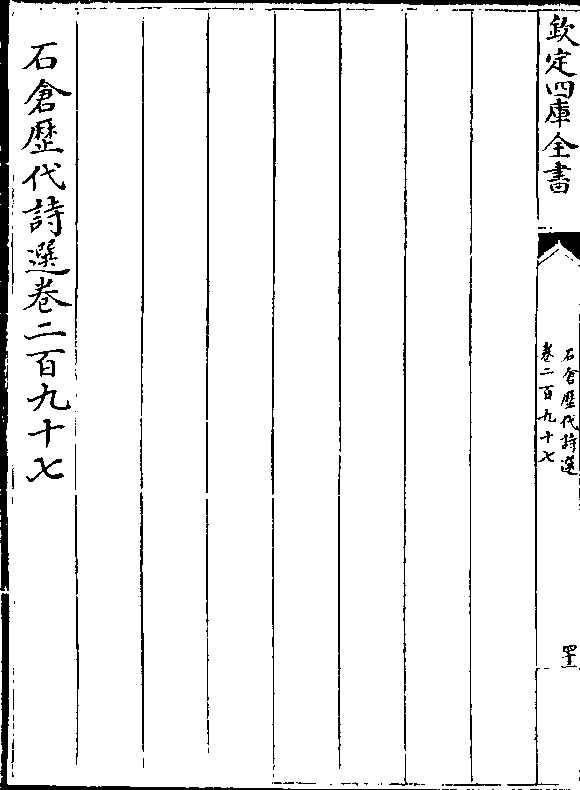 欽定四庫全書
石倉歷代詩選
卷二百九十七
石倉歷代詩選卷二百九十七